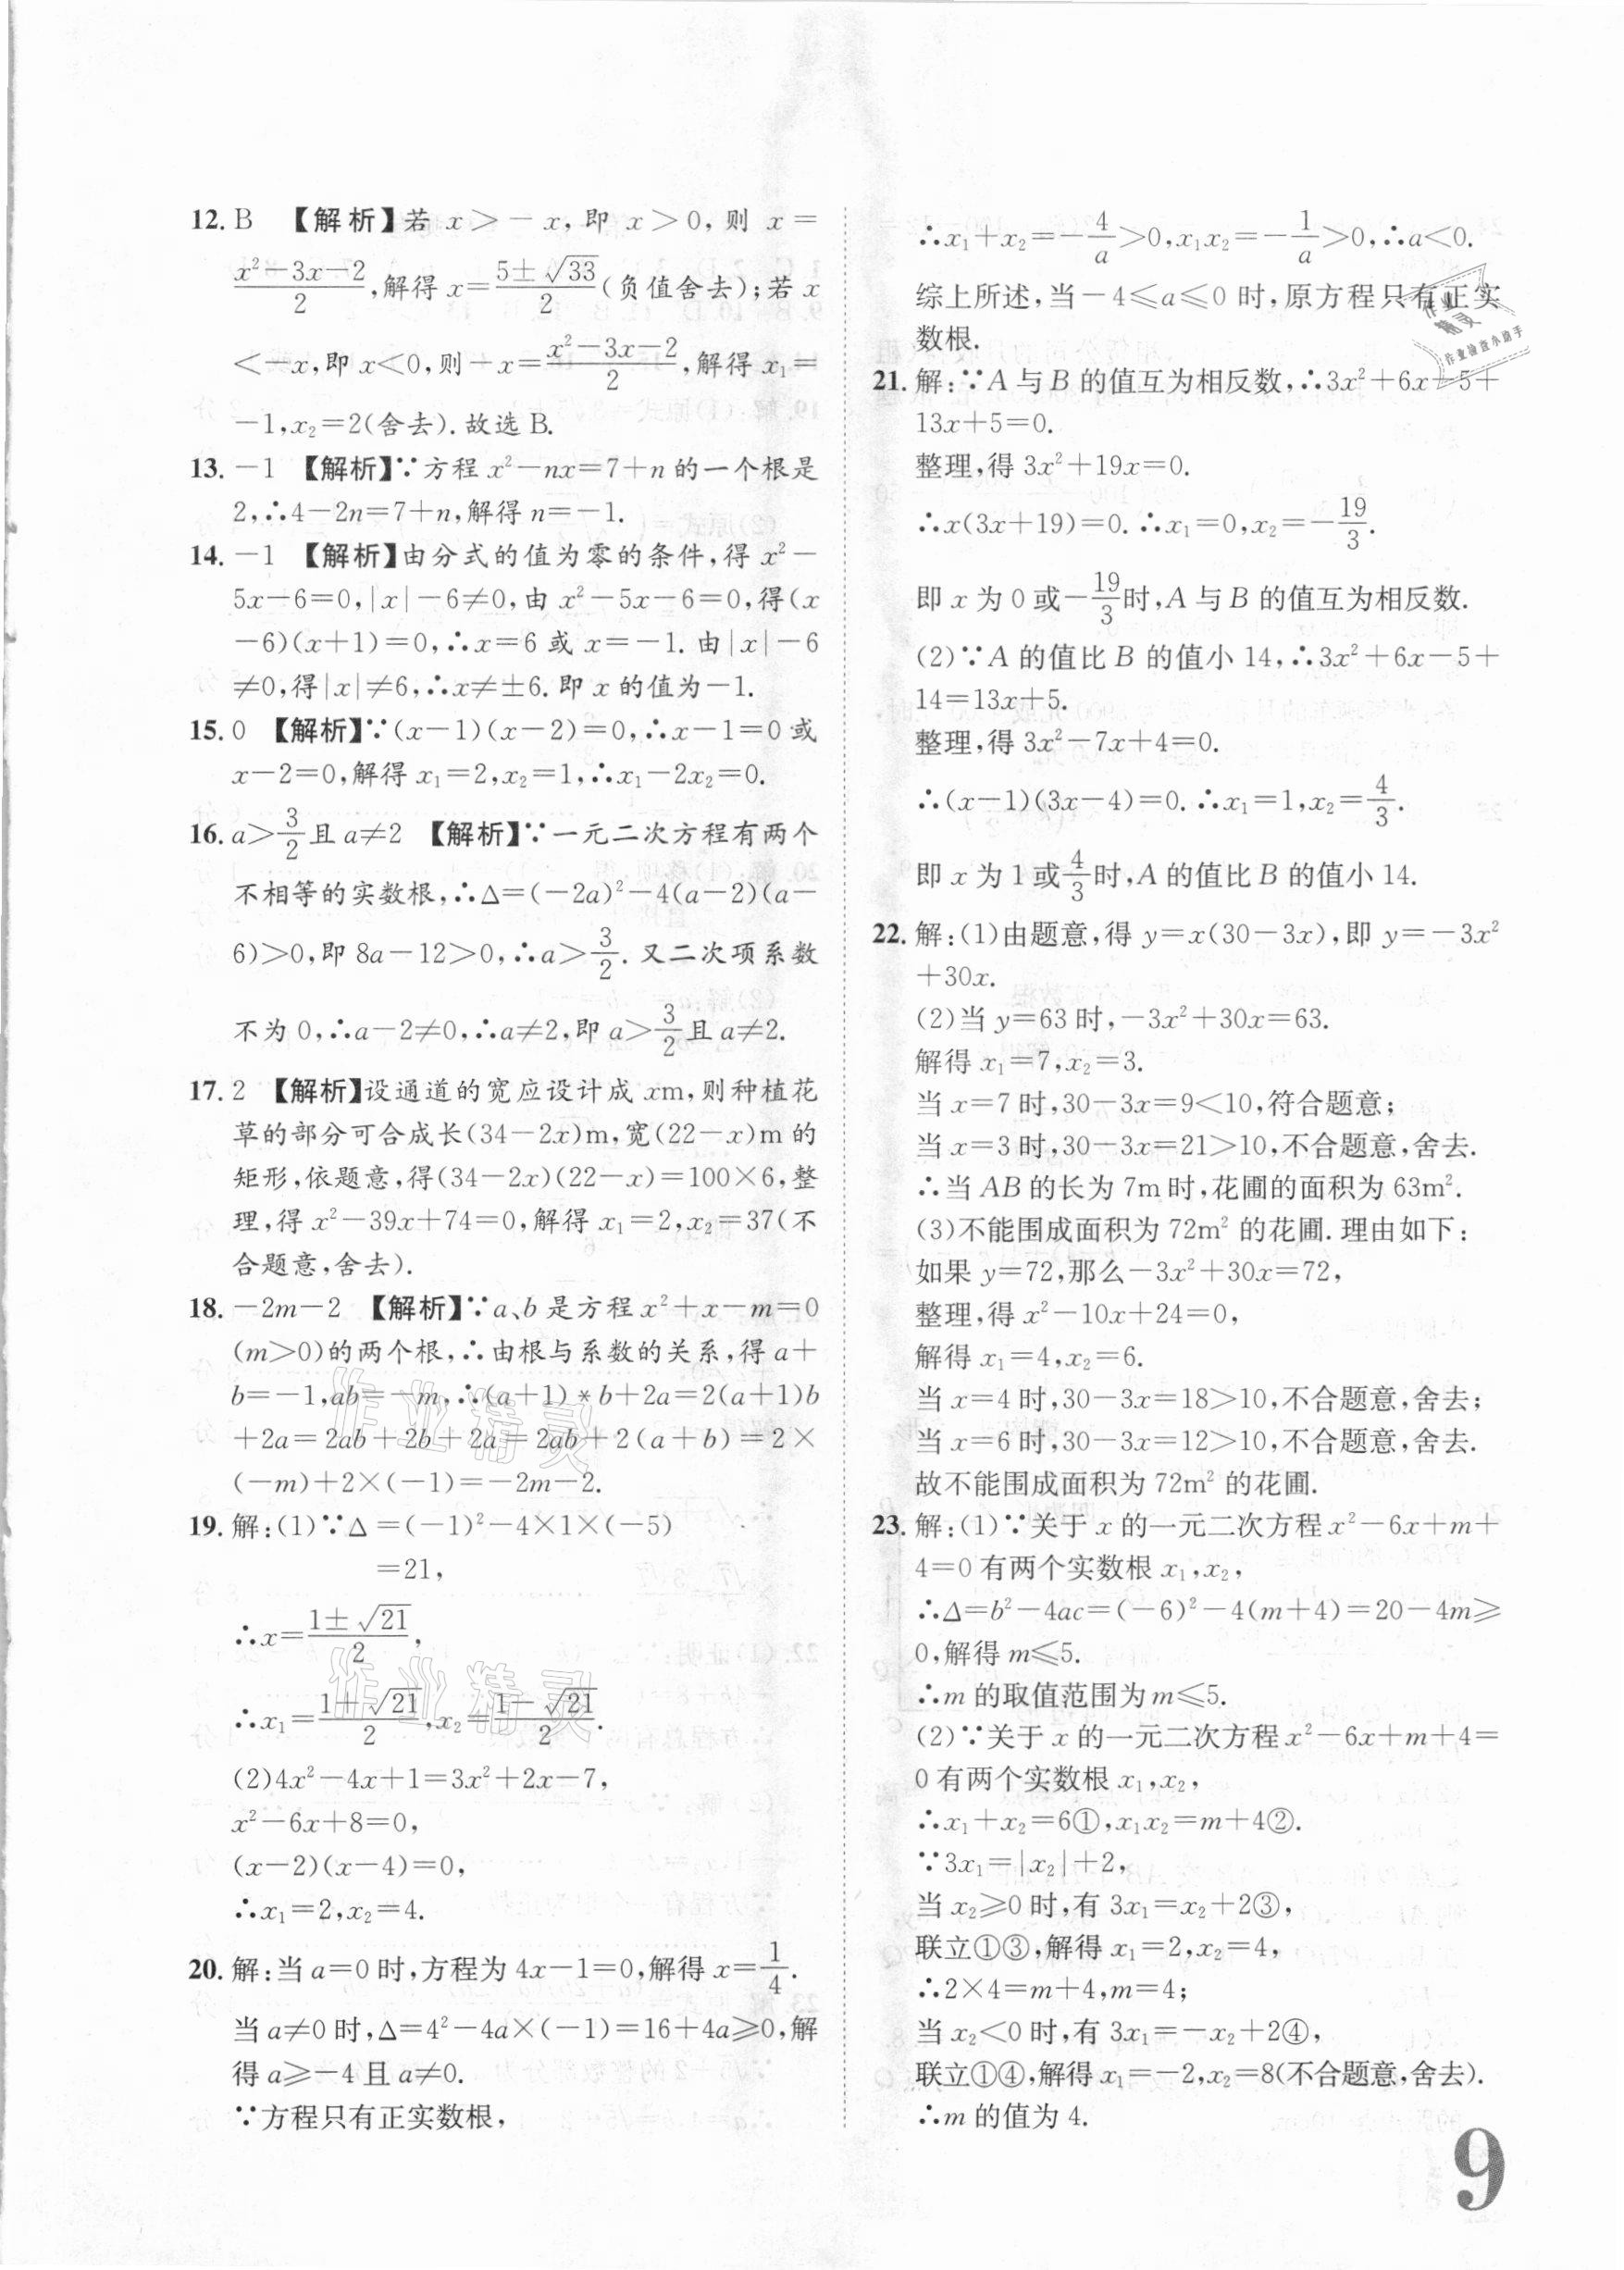 12. B 【解析】若 x＞－x, 即 x＞0, 则 x＝
(x²－3x－2)/2, 解得 x＝(5±√33)/2 (负值舍去); 若 x
＜－x, 即 x＜0, 则－x＝(x²－3x－2)/2, 解得 x₁＝
－1, x₂＝2(舍去). 故选 B.
13. －1 【解析】∵方程 x²－nx＝7＋n 的一个根是
2, ∴4－2n＝7＋n, 解得 n＝－1.
14. －1 【解析】由分式的值为零的条件, 得 x²－
5x－6＝0, |x|－6≠0, 由 x²－5x－6＝0, 得(x
－6)(x＋1)＝0, ∴x＝6 或 x＝－1. 由|x|－6
≠0, 得|x|≠6, ∴x≠±6. 即 x 的值为－1.
15. 0 【解析】∵(x－1)(x－2)＝0, ∴x－1＝0 或
x－2＝0, 解得 x₁＝2, x₂＝1, ∴x₁－2x₂＝0.
16. a＞3/2 且 a≠2 【解析】∵一元二次方程有两个
不相等的实数根, ∴Δ＝(－2a)²－4(a－2)(a－
6)＞0, 即 8a－12＞0, ∴a＞3/2. 又二次项系数
不为 0, ∴a－2≠0, ∴a≠2, 即 a＞3/2 且 a≠2.
17. 2 【解析】设通道的宽应设计成 xm, 则种植花
草的部分可合成长(34－2x)m, 宽(22－x)m 的
矩形, 依题意, 得(34－2x)(22－x)＝100×6, 整
理, 得 x²－39x＋74＝0, 解得 x₁＝2, x₂＝37(不
合题意, 舍去).
18. －2m－2 【解析】∵a、b 是方程 x²＋x－m＝0
(m＞0)的两个根, ∴由根与系数的关系, 得 a＋
b＝－1, ab＝－m, ∴(a＋1)*b＋2a＝2(a＋1)b
＋2a＝2ab＋2b＋2a＝2ab＋2(a＋b)＝2×
(－m)＋2×(－1)＝－2m－2.
19. 解: (1)∵Δ＝(－1)²－4×1×(－5)
＝21,
∴x＝(1±√21)/2,
∴x₁＝(1＋√21)/2, x₂＝(1－√21)/2.
(2)4x²－4x＋1＝3x²＋2x－7,
x²－6x＋8＝0,
(x－2)(x－4)＝0,
∴x₁＝2, x₂＝4.
20. 解: 当 a＝0 时, 方程为 4x－1＝0, 解得 x＝1/4.
当 a≠0 时, Δ＝4²－4a×(－1)＝16＋4a≥0, 解
得 a≥－4 且 a≠0.
∵方程只有正实数根,
∴x₁＋x₂＝－4/a＞0, x₁x₂＝－1/a＞0, ∴a＜0.
综上所述, 当－4≤a≤0 时, 原方程只有正实
数根.
21. 解: ∵A 与 B 的值互为相反数, ∴3x²＋6x－5＋
13x＋5＝0.
整理, 得 3x²＋19x＝0.
∴x(3x＋19)＝0. ∴x₁＝0, x₂＝－19/3.
即 x 为 0 或－19/3时, A 与 B 的值互为相反数.
(2)∵A 的值比 B 的值小 14, ∴3x²＋6x－5＋
14＝13x＋5.
整理, 得 3x²－7x＋4＝0.
∴(x－1)(3x－4)＝0. ∴x₁＝1, x₂＝4/3.
即 x 为 1 或4/3时, A 的值比 B 的值小 14.
22. 解: (1)由题意, 得 y＝x(30－3x), 即 y＝－3x²
＋30x.
(2)当 y＝63 时, －3x²＋30x＝63.
解得 x₁＝7, x₂＝3.
当 x＝7 时, 30－3x＝9＜10, 符合题意;
当 x＝3 时, 30－3x＝21＞10, 不合题意, 舍去.
∴当 AB 的长为 7m 时, 花圃的面积为 63m².
(3)不能围成面积为 72m² 的花圃. 理由如下:
如果 y＝72, 那么－3x²＋30x＝72,
整理, 得 x²－10x＋24＝0,
解得 x₁＝4, x₂＝6.
当 x＝4 时, 30－3x＝18＞10, 不合题意, 舍去;
当 x＝6 时, 30－3x＝12＞10, 不合题意, 舍去.
故不能围成面积为 72m² 的花圃.
23. 解: (1)∵关于 x 的一元二次方程 x²－6x＋m＋
4＝0 有两个实数根 x₁, x₂,
∴Δ＝b²－4ac＝(－6)²－4(m＋4)＝20－4m≥
0, 解得 m≤5.
∴m 的取值范围为 m≤5.
(2)∵关于 x 的一元二次方程 x²－6x＋m＋4＝
0 有两个实数根 x₁, x₂,
∴x₁＋x₂＝6①, x₁x₂＝m＋4②.
∵3x₁＝|x₂|＋2,
当 x₂≥0 时, 有 3x₁＝x₂＋2③,
联立①③, 解得 x₁＝2, x₂＝4,
∴2×4＝m＋4, m＝4;
当 x₂＜0 时, 有 3x₁＝－x₂＋2④,
联立①④, 解得 x₁＝－2, x₂＝8(不合题意, 舍去).
∴m 的值为 4.
9
作业精灵
作业精灵
作业精灵
作业检查小助手